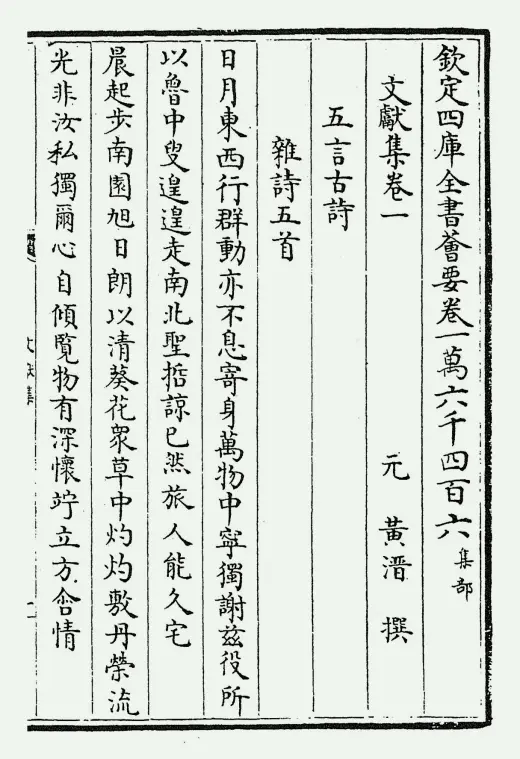 欽定四庫全書薈要卷一萬六千四百六 集部
文獻集卷一 元 黃溍 撰
五言古詩
雜詩五首
日月東西行群動亦不息寄身萬物中寧獨謝茲役所
以魯中叟遑遑走南北聖哲諒已然旅人能久宅
晨起步南園旭日朗以清葵花衆草中灼灼敷丹榮流
光非汝私獨爾心自傾覽物有深懷竚立方含情
文獻集